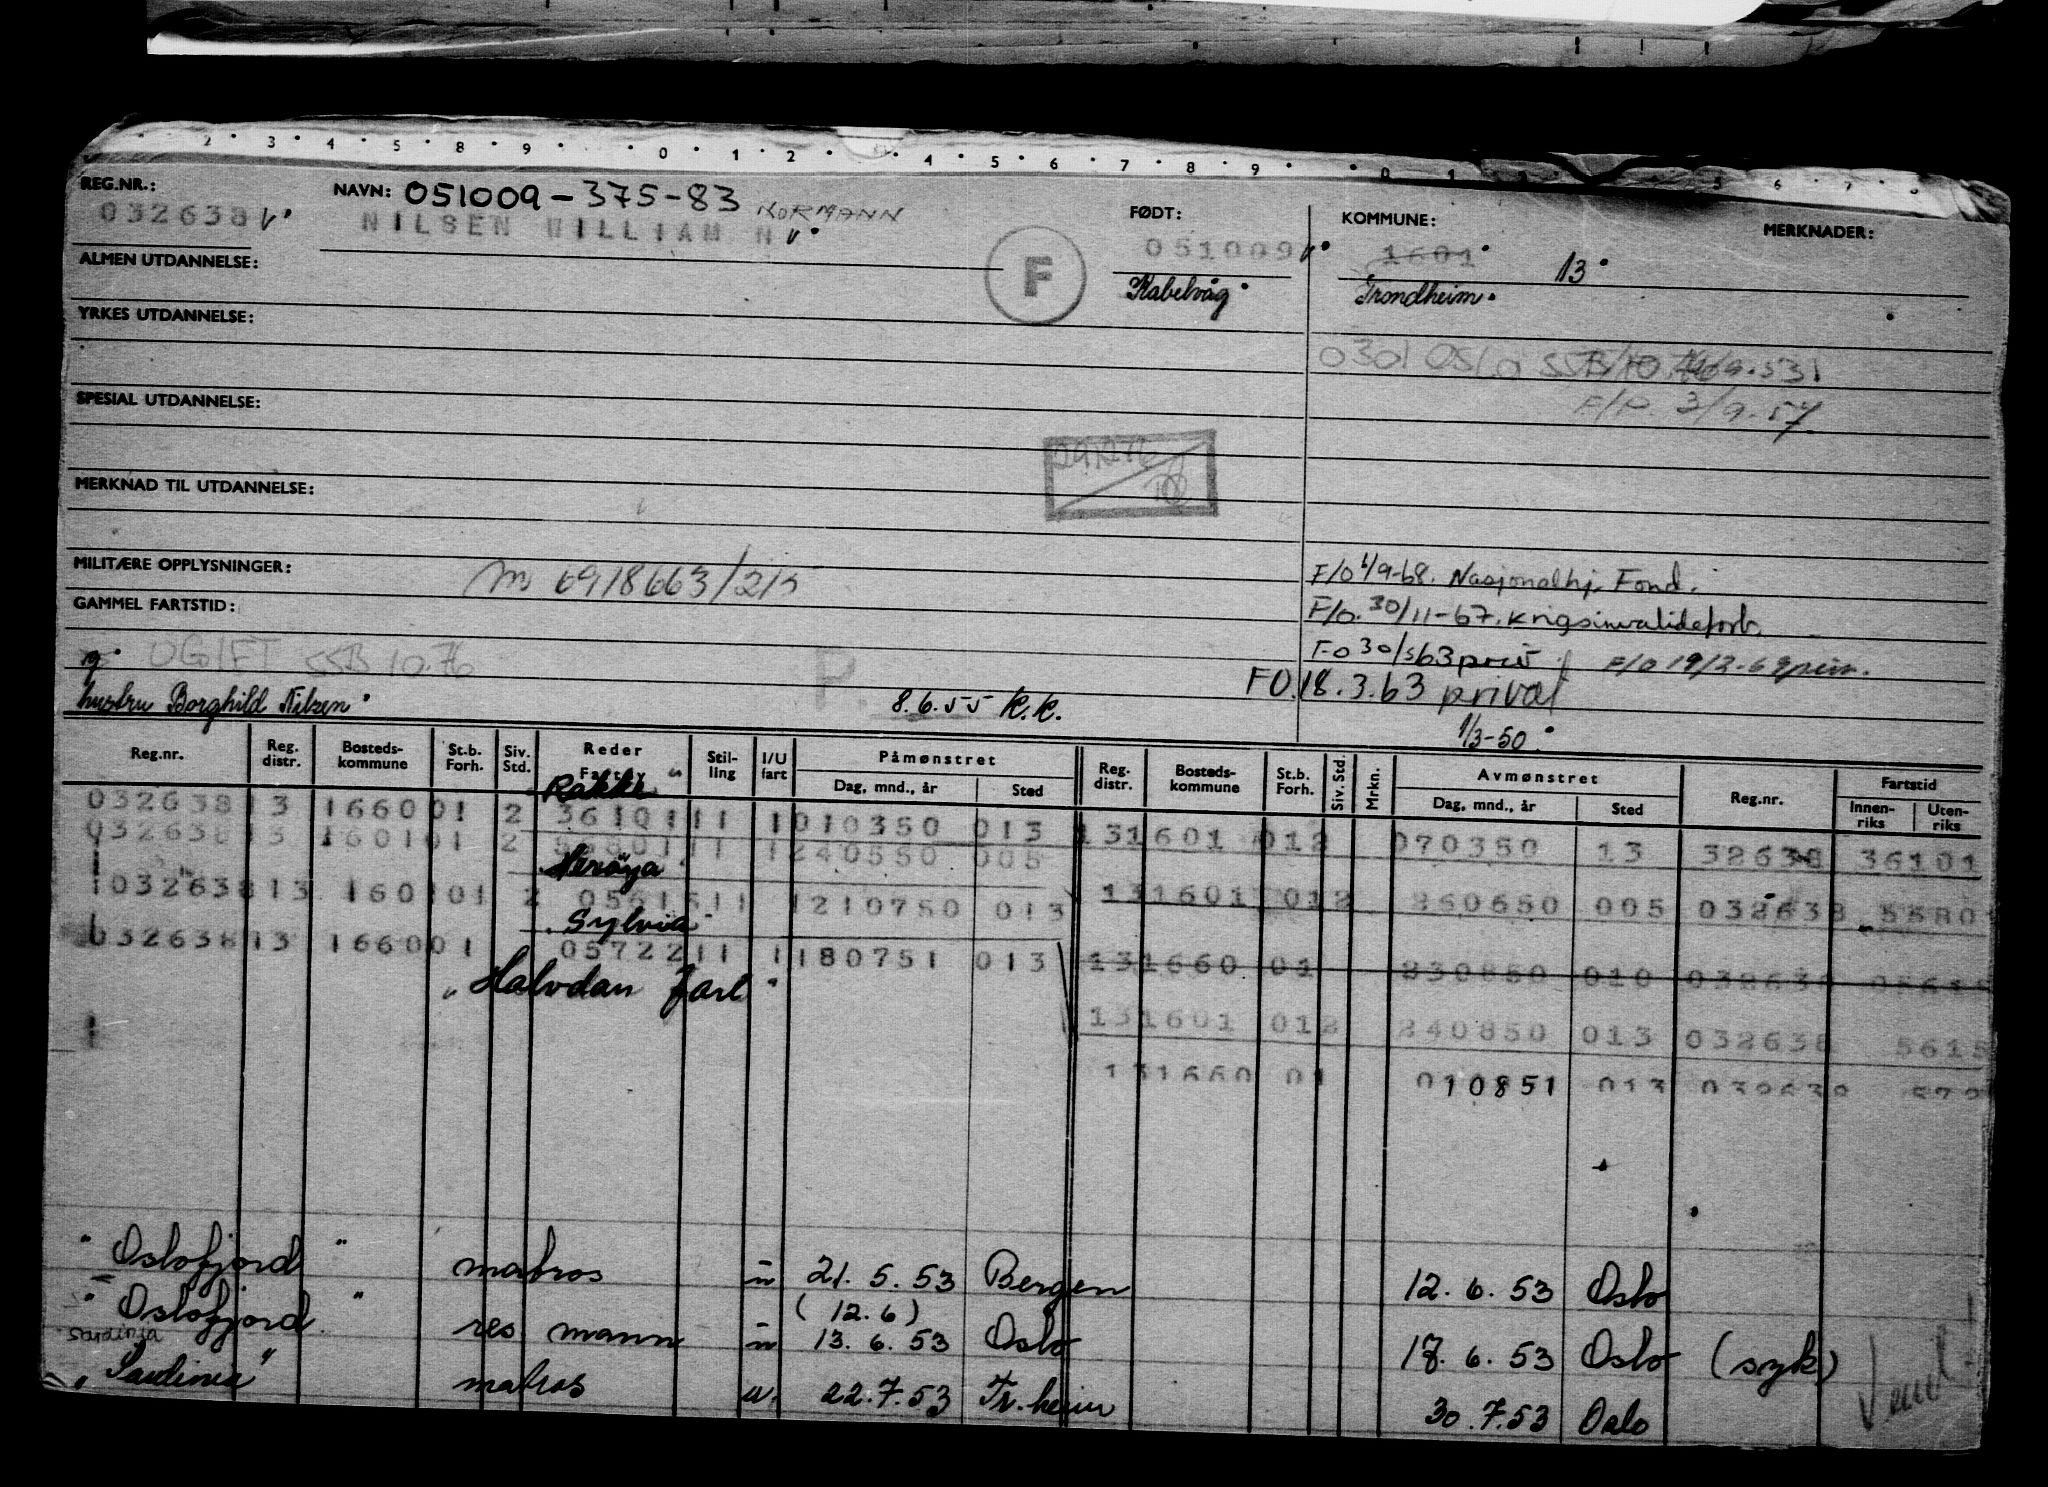 2 3 4 5 8 9 0 1 2 4 5 6 7 8 9
REG.NR.: NAVN: 051009-375-83 NORMANN FØDT: KOMMUNE: MERKNADER:
032638 NILSEN WILLIAM N 051009 1601 13
ALMEN UTDANNELSE: F Kabelvåg Trondheim
YRKES UTDANNELSE:
0301 OSLO SSB
SPESIAL UTDANNELSE: F/P. 3/9-57
291276
MERKNAD TIL UTDANNELSE:
MILITÆRE OPPLYSNINGER: F/O 4/9-68. Nasjonalhj. Fond.
GAMMEL FARTSTID: F/O. 30/11-67. Krigsinvalideforb.
UGIFT SSB 10.76 P. FO 30/563 priv F/O 19/2-69 priv.
g FO. 18.3.63 privat
hustru Borghild Nilsen 8.6.55 K.K. 1/3-50
Reg.nr. Reg. distr. Bosteds-kommune St.b. Forh. Siv. Std. Reder Fartøy Stil-ling I/U fart Påmønstret Dag, mnd., år Sted Reg. distr. Bosteds-kommune St.b. Forh. Siv. Std. Mrkn. Avmønstret Dag, mnd., år Sted Reg.nr. Fartstid Innen-riks Uten-riks
Rakke
032638 13 1660 01 2 3610111 1 010350 013 131601 012 070350 13 32638 36101
032638 13 1601 01 2 1 240550 005
Herøya
032638 13 1601 01 2 0561511 1 210750 013 131601 012 260650 005 032638 5580
Sylvia
032638 13 1660 01 0572211 1 180751 013 131660 01 230850 010 032638 05615
"Halvdan Jarl"
131601 012 240850 013 032638 5615
131660 01 010851 013 032638 572
"Oslofjord" matros u 21.5.53 Bergen 12.6.53 Oslo
(12.6)
"Oslofjord" res mann u 13.6.53 Oslo 18.6.53 Oslo (syk)
sardinia
"Sardinia" matros u. 22.7.53 Tr.heim 30.7.53 Oslo
Vend